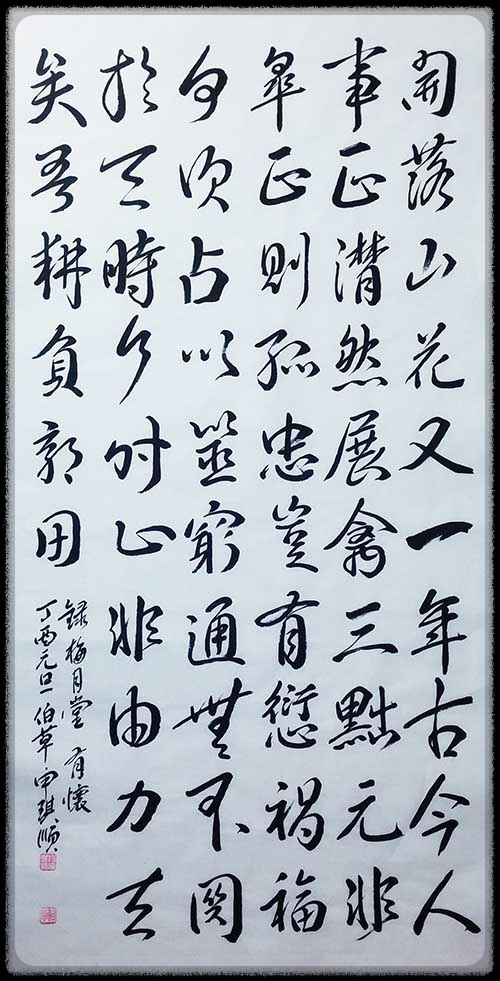 開落山花又一年古今人
事正潸然展禽三黜元非
辠正則孤忠豈有愆禍福
勿須占以筮窮通無不関
於天時行時止非由力去
矣吾耕負郭田
錄梅月堂 有懷
丁酉元旦 伯草 申琪順